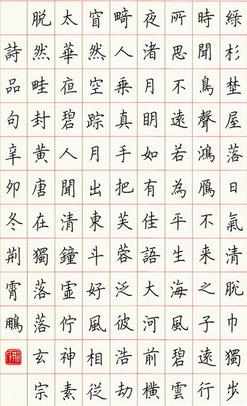 綠杉埜屋落日氣清脫巾獨步
時聞鳥聲鴻雁不來之子遠行
所思不遠若為平生海風碧雲
夜渚月明如有佳語大河前橫
畸人乘真手把芙蓉泛彼浩劫
窅然空踪月出東斗好風相從
太華夜碧人聞清鐘虛佇神素
脫然畦封黃唐在獨落落玄宗
詩品句辛卯冬荆霄鵬